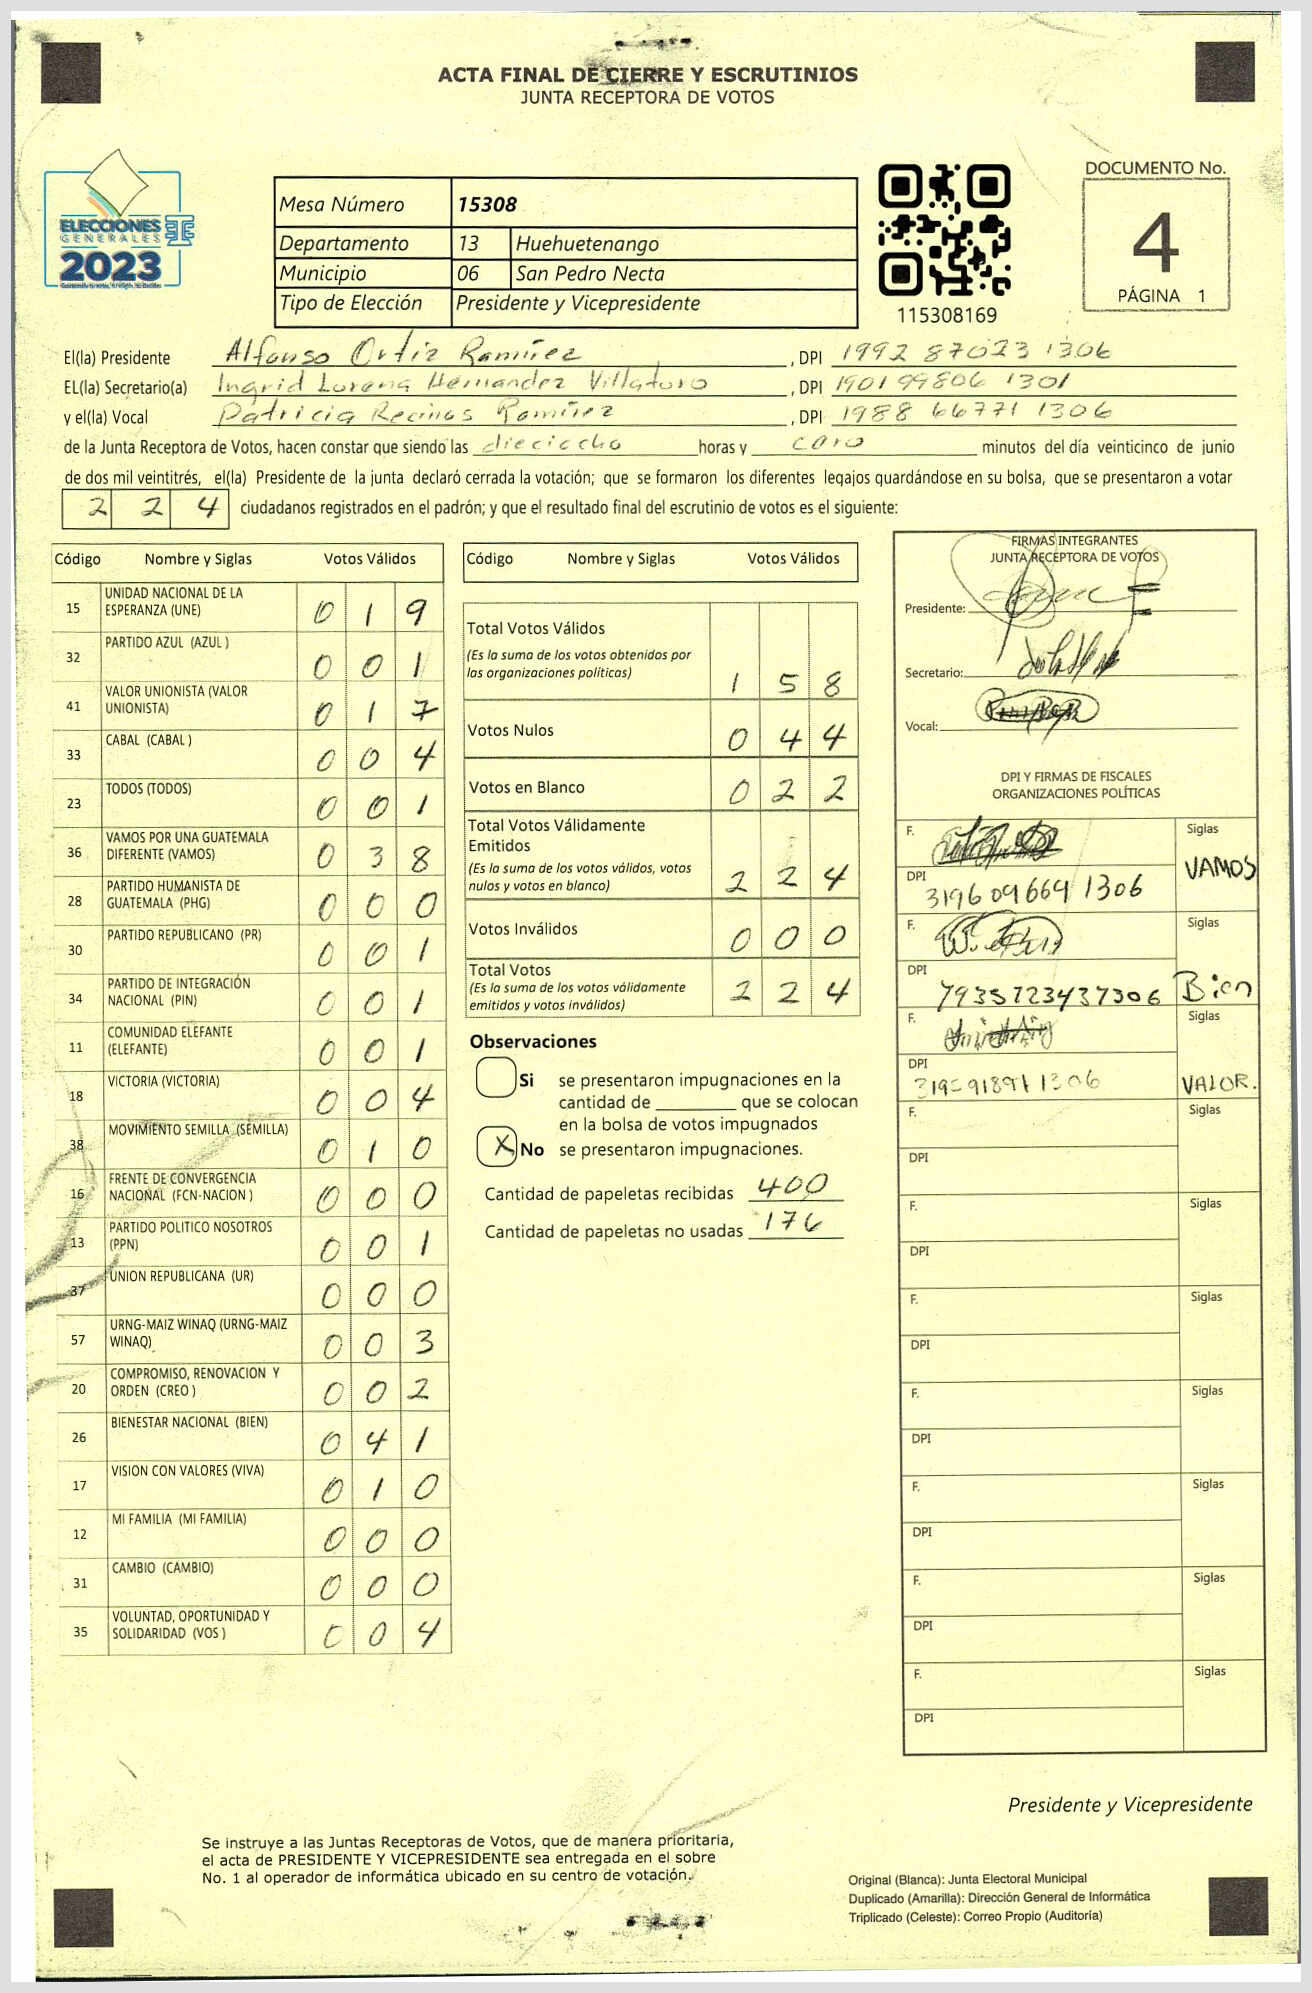 ACTA FINAL DE CIERRE Y ESCRUTINIOS
JUNTA RECEPTORA DE VOTOS
ELECCIONES
GENERALES
2023
Mesa Número 15308
Departamento 13 Huehuetenango
Municipio 06 San Pedro Necta
Tipo de Elección Presidente y Vicepresidente
115308169
DOCUMENTO No.
4
PÁGINA 1
El(la) Presidente Alfonso Ortiz Ramírez , DPI 1992 87023 1306
EL(la) Secretario(a) Ingrid Lorena Hernandez Villatoro , DPI 190199806 1301
y el(la) Vocal Patricia Recinos Ramírez , DPI 1988 66771 1306
de la Junta Receptora de Votos, hacen constar que siendo las dieciocho horas y cero minutos del día veinticinco de junio
de dos mil veintitrés, el(la) Presidente de la junta declaró cerrada la votación; que se formaron los diferentes legajos quardándose en su bolsa, que se presentaron a votar
2 2 4 ciudadanos registrados en el padrón; y que el resultado final del escrutinio de votos es el siguiente:
Código Nombre y Siglas Votos Válidos
15 UNIDAD NACIONAL DE LA
ESPERANZA (UNE) 0 1 9
32 PARTIDO AZUL (AZUL ) 0 0 1
41 VALOR UNIONISTA (VALOR
UNIONISTA) 0 1 7
33 CABAL (CABAL ) 0 0 4
23 TODOS (TODOS) 0 0 1
36 VAMOS POR UNA GUATEMALA
DIFERENTE (VAMOS) 0 3 8
28 PARTIDO HUMANISTA DE
GUATEMALA (PHG) 0 0 0
30 PARTIDO REPUBLICANO (PR) 0 0 1
34 PARTIDO DE INTEGRACIÓN
NACIONAL (PIN) 0 0 1
11 COMUNIDAD ELEFANTE
(ELEFANTE) 0 0 1
18 VICTORIA (VICTORIA) 0 0 4
38 MOVIMIENTO SEMILLA (SEMILLA) 0 1 0
16 FRENTE DE CONVERGENCIA
NACIONAL (FCN-NACION ) 0 0 0
13 PARTIDO POLITICO NOSOTROS
(PPN) 0 0 1
37 UNION REPUBLICANA (UR) 0 0 0
57 URNG-MAIZ WINAQ (URNG-MAIZ
WINAQ) 0 0 3
20 COMPROMISO, RENOVACION Y
ORDEN (CREO ) 0 0 2
26 BIENESTAR NACIONAL (BIEN) 0 4 1
17 VISION CON VALORES (VIVA) 0 1 0
12 MI FAMILIA (MI FAMILIA) 0 0 0
31 CAMBIO (CAMBIO) 0 0 0
35 VOLUNTAD, OPORTUNIDAD Y
SOLIDARIDAD (VOS ) 0 0 4
Código Nombre y Siglas Votos Válidos
Total Votos Válidos
(Es la suma de los votos obtenidos por
las organizaciones políticas) 1 5 8
Votos Nulos 0 4 4
Votos en Blanco 0 2 2
Total Votos Válidamente
Emitidos
(Es la suma de los votos válidos, votos
nulos y votos en blanco) 2 2 4
Votos Inválidos 0 0 0
Total Votos
(Es la suma de los votos válidamente
emitidos y votos inválidos) 2 2 4
Observaciones
Si se presentaron impugnaciones en la
cantidad de ________ que se colocan
en la bolsa de votos impugnados
X No se presentaron impugnaciones.
Cantidad de papeletas recibidas 400
Cantidad de papeletas no usadas 176
FIRMAS INTEGRANTES
JUNTA RECEPTORA DE VOTOS
Presidente:
Secretario:
Vocal:
DPI Y FIRMAS DE FISCALES
ORGANIZACIONES POLÍTICAS
F. Siglas
VAMOS
DPI 3196 09664 1306
F. Siglas
DPI 7935723437306 Bien
F. Siglas
DPI 1306 VALOR.
F. Siglas
DPI
F. Siglas
DPI
F. Siglas
DPI
F. Siglas
DPI
F. Siglas
DPI
F. Siglas
DPI
F. Siglas
DPI
Presidente y Vicepresidente
Se instruye a las Juntas Receptoras de Votos, que de manera prioritaria,
el acta de PRESIDENTE Y VICEPRESIDENTE sea entregada en el sobre
No. 1 al operador de informática ubicado en su centro de votación.
Original (Blanca): Junta Electoral Municipal
Duplicado (Amarilla): Dirección General de Informática
Triplicado (Celeste): Correo Propio (Auditoría)